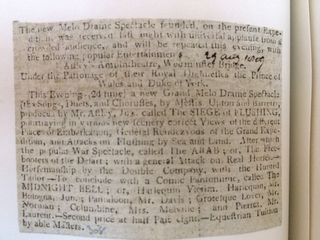 The new Melo Drame Spectacle founded, on the present Expe-
dition, was received last night with universal applause from a
crowded audience, and will be repeated this evening, with
the following popular Entertainments.
Astley's Amphitheatre, Westminster Bridge.
Under the Patronage of their Royal Highnesses the Prince of
Wales and Duke of York.
This Evening, 2d time, a new Grand Melo Drame Spectacle
(the Songs, Duets, and Chorusses, by Messrs. Upton and
produced by Mr. Astley, Jun. called The SIEGE of FLUSHING,
portraying in various new Scenery correct Views of the different
Places of Embarkation, General Rendezvous of the Grand Expe-
dition, and Attacks on Flushing by Sea and Land. After which
the popular War Spectacle, called The ARAB; or, The Free-
booters of the Desart; with a general Attack on Real Horses.—
Horsemanship by the Double Company, with the Hunted
Tailor—To conclude with a Comic Pantomime, called The
MIDNIGHT BELL; or, Harlequin Victim. Harlequin, Mr.
Bologna, Jun. Pantaloon, Mr. Davis; Grotesque Lover, Mr.
Norman; Columbine, Mrs. and Pierrot, Mr.
Laurent.—Second price at half past eight.—Equestrian Tuition
by able Masters.